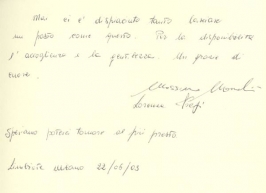 Mai ci è dispiaciuto tanto lasciare
un posto come questo. Per la disponibilità
l'accoglienza e la gentilezza. Un grazie di
cuore.
Massimo
Lorena
Speriamo poter tornare al più presto
22/06/03